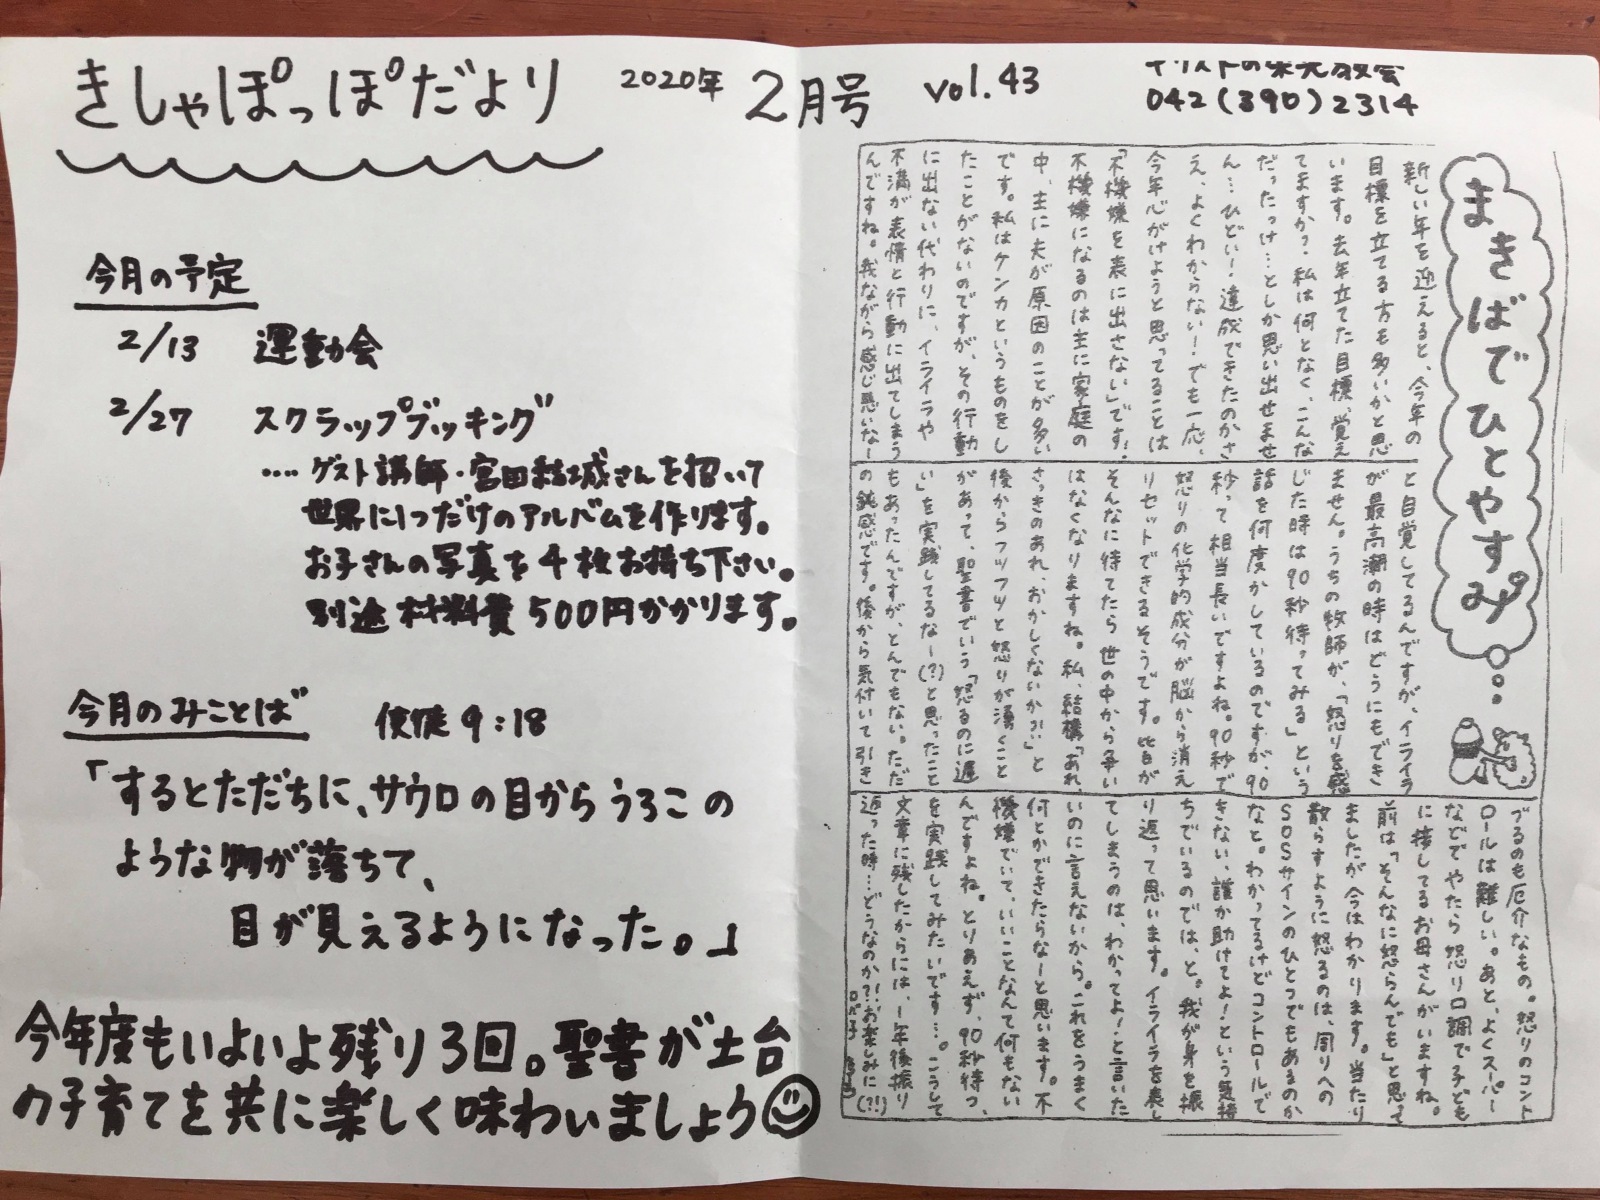 きしゃぽっぽだより
2020年
2月号
vol.43
キリストの栄光教会
042(390)2314
今月の予定
2/13 運動会
2/27 スクラップブッキング
‥‥ゲスト講師・宮田結城さんを招いて
世界に1つだけのアルバムを作ります。
お子さんの写真を4枚お持ち下さい。
別途材料費500円かかります。
今月のみことば 使徒9:18
「するとただちに、サウロの目からうろこの
ような物が落ちて、
目が見えるようになった。」
今年度もいよいよ残り3回。聖書が土台
の子育てを共に楽しく味わいましょう
まきばでひとやすみ
新しい年を迎えると、今年の
目標を立てる方も多いかと思
います。去年立てた目標、覚え
てますか?私は何となく、こんな
だったっけ…としか思い出せませ
ん…ひどい!達成できたのかさ
え、よくわからない!でも一応、
今年心がけようと思ってることは
「不機嫌を表に出さない」です。
不機嫌になるのは主に家庭の
中、主に夫が原因のことが多い
です。私はケンカというものをし
たことがないのですが、その行動
に出ない代わりに、イライラや
不満が表情と行動に出てしまう
んですね。我ながら感じ悪いなー
と自覚してるんですが、イライラ
が最高潮の時はどうにもでき
ません。うちの牧師が、「怒りを感
じた時は90秒待ってみる」という
話を何度かしているのですが、90
秒って相当長いですよね。90秒で
怒りの化学的成分が脳から消え
リセットできるそうです。皆が
そんなに待てたら世の中から争い
はなくなりますね。私、結構「あれ、
さっきのあれ、おかしくないか!?」と
後からフツフツと怒りが湧くこと
があって、聖書でいう「怒るのに遅
い」を実践してるなー(?)と思ったこと
もあったんですが、とんでもない。ただ
の鈍感です。後から気付いて引き
づるのも厄介なもの。怒りのコント
ロールは難しい。あと、よくスーパー
などでやたら怒り口調で子ども
に接してるお母さんがいますね。
前は「そんなに怒らんでも」と思って
ましたが今はわかります。当たり
散らすように怒るのは、周りへの
SOSサインのひとつでもあるのか
なと。わかってるけどコントロールで
きない、誰か助けてよ!という気持
ちでいるのでは、と。我が身を振
り返って思います。イライラを表し
てしまうのは、わかってよ!と言いた
いのに言えないから。これをうまく
何とかできたらなーと思います。不
機嫌でいて、いいことなんて何もない
んですよね。とりあえず、90秒待つ、
を実践してみたいです…。こうして
文章に残したからには、1年後振り
返った時…どうなのか?!お楽しみに(?!)